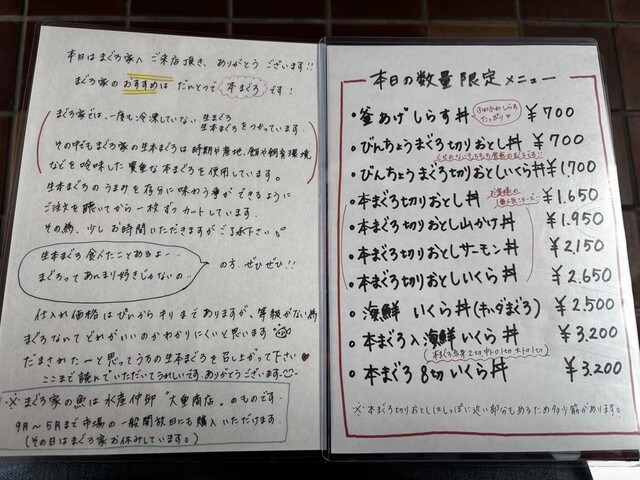 本日はまぐろ家へ ご来店頂き、ありがとう ございます!!
まぐろ家の おすすめは だんとつで 本まぐろ です!
まぐろ家では、一度も冷凍していない 生まぐろ
生本まぐろをつかっています。
その中でもまぐろ家の生本まぐろは 時期や産地、餌や飼育環境
などを吟味した貴重な本まぐろを使用しています。
生本まぐろの うまみを存分に味わう事ができるように
ご注文を聴いてから一枚ずつカートしています。
その為、少しお時間いただきますがご了承下さい。
生本まぐろ食べたことあるよー
まぐろってあんまり好きじゃないの…
の方、ぜひぜひ!!
仕入れ価格はぴんからキリまでありますが、等級がない為
まぐろなんてどれがいいのかわかりにくいと思います
だまされたーと思ってうちの生本まぐろを召し上がって下さい♥
ここまで読んでいただいてうれしいです。ありがとうございます。
※まぐろ家の魚は水産仲卸 "大東商店"のものです。
9月〜5月まで市場の一般開放日にも購入いただけます。
(その日はまぐろ家お休みしています。)
本日の数量限定メニュー
・釜あげしらす丼 ふわふわしらすたっぷり ¥700
・びんちょうまぐろ切りおとし丼 ¥700
・びんちょうまぐろ切りおとしいくら丼 ¥1,700
・本まぐろ切りおとし丼 ¥1.650
・本まぐろ切りおとし山かけ丼 ¥1.950
・本まぐろ切りおとしサーモン丼 ¥2,150
・本まぐろ切りおとしいくら丼 ¥2.650
・海鮮 いくら丼(キハダまぐろ) ¥2.500
・本まぐろ入海鮮いくら丼 ¥3.200
・本まぐろ 8切いくら丼 ¥3.200
※本まぐろ切りおとしはしっぽに近い部分もあるため多少筋があります。